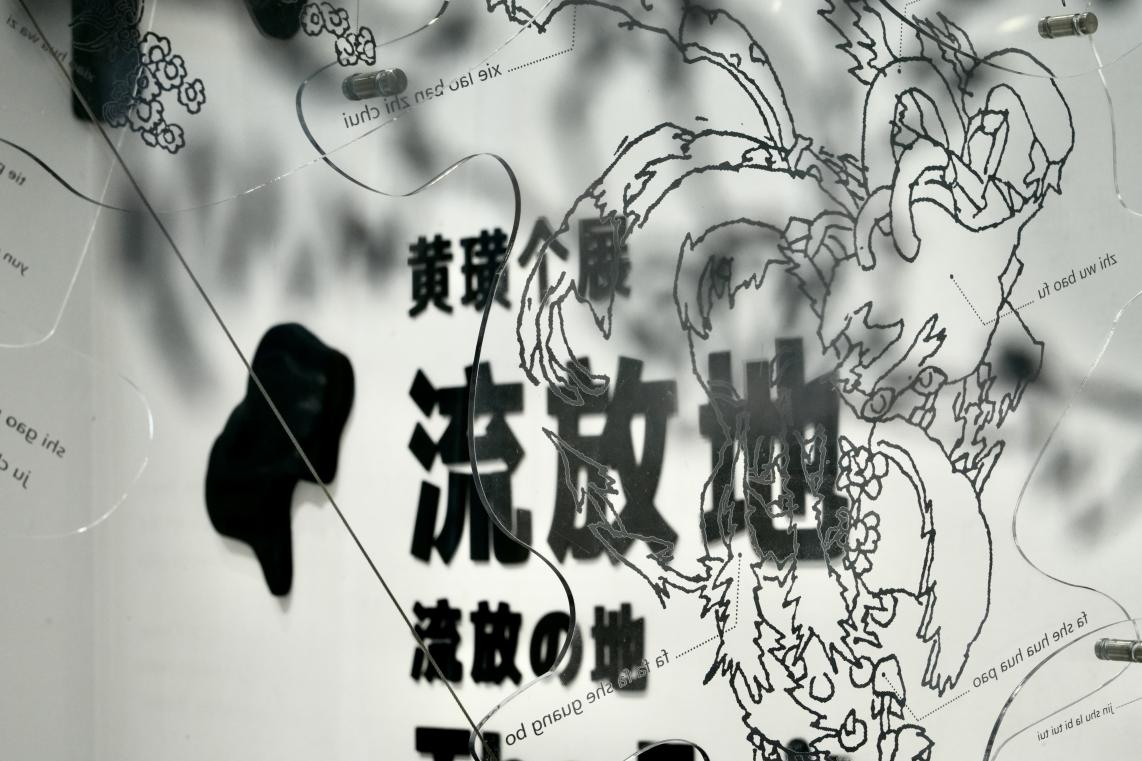 hua wa zi
xie lao ban zhi chui
tie
yun
zhi wu bao fu
黄璜个展
流放地
shi gao
流放の地
fa she hua hua pao
she guang bo
jin shu la bi tui tui